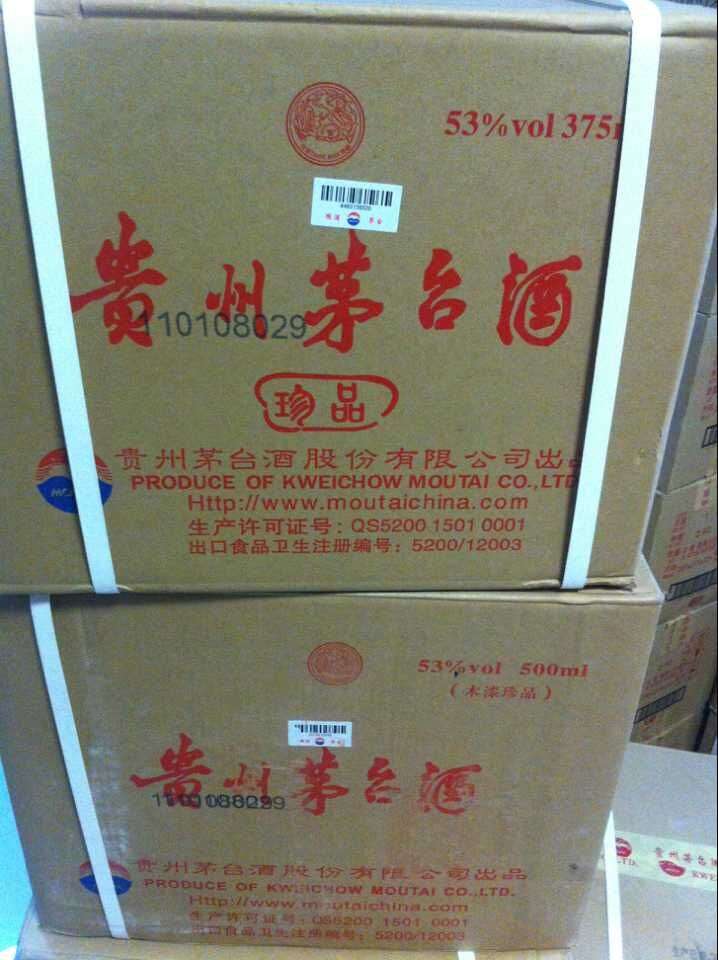 53%vol 375
贵州茅台酒
110108029
珍品
贵州茅台酒股份有限公司出品
PRODUCE OF KWEICHOW MOUTAI CO.,LTD
Http://www.moutaichina.com
生产许可证号：QS5200 1501 0001
出口食品卫生注册编号：5200/12003
53%vol 500ml
（木漆珍品）
贵州茅台酒
贵州茅台酒股份有限公司出品
PRODUCE OF KWEICHOW MOUTAI CO.,LTD.
Http://www.moutaichina.com
生产许可证号：QS5200 1501 0001
出口食品卫生注册编号：5200/12003
贵州茅台
KWE